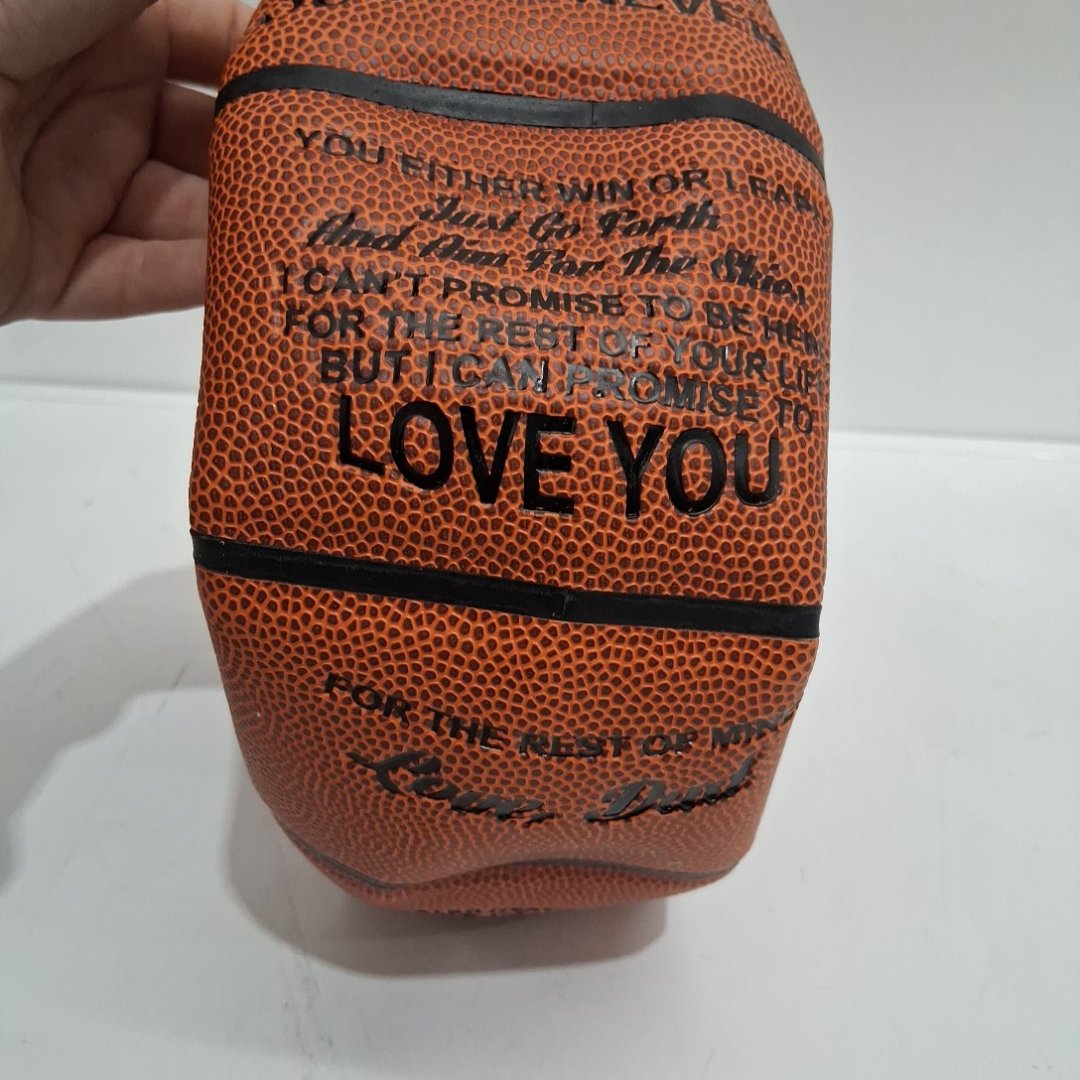 YOU EITHER WIN OR LEARN
Just Go Forth
And Aim For The Skies
I CAN'T PROMISE TO BE HERE
FOR THE REST OF YOUR LIFE
BUT I CAN PROMISE TO
LOVE YOU
FOR THE REST OF MINE
Love, Dad